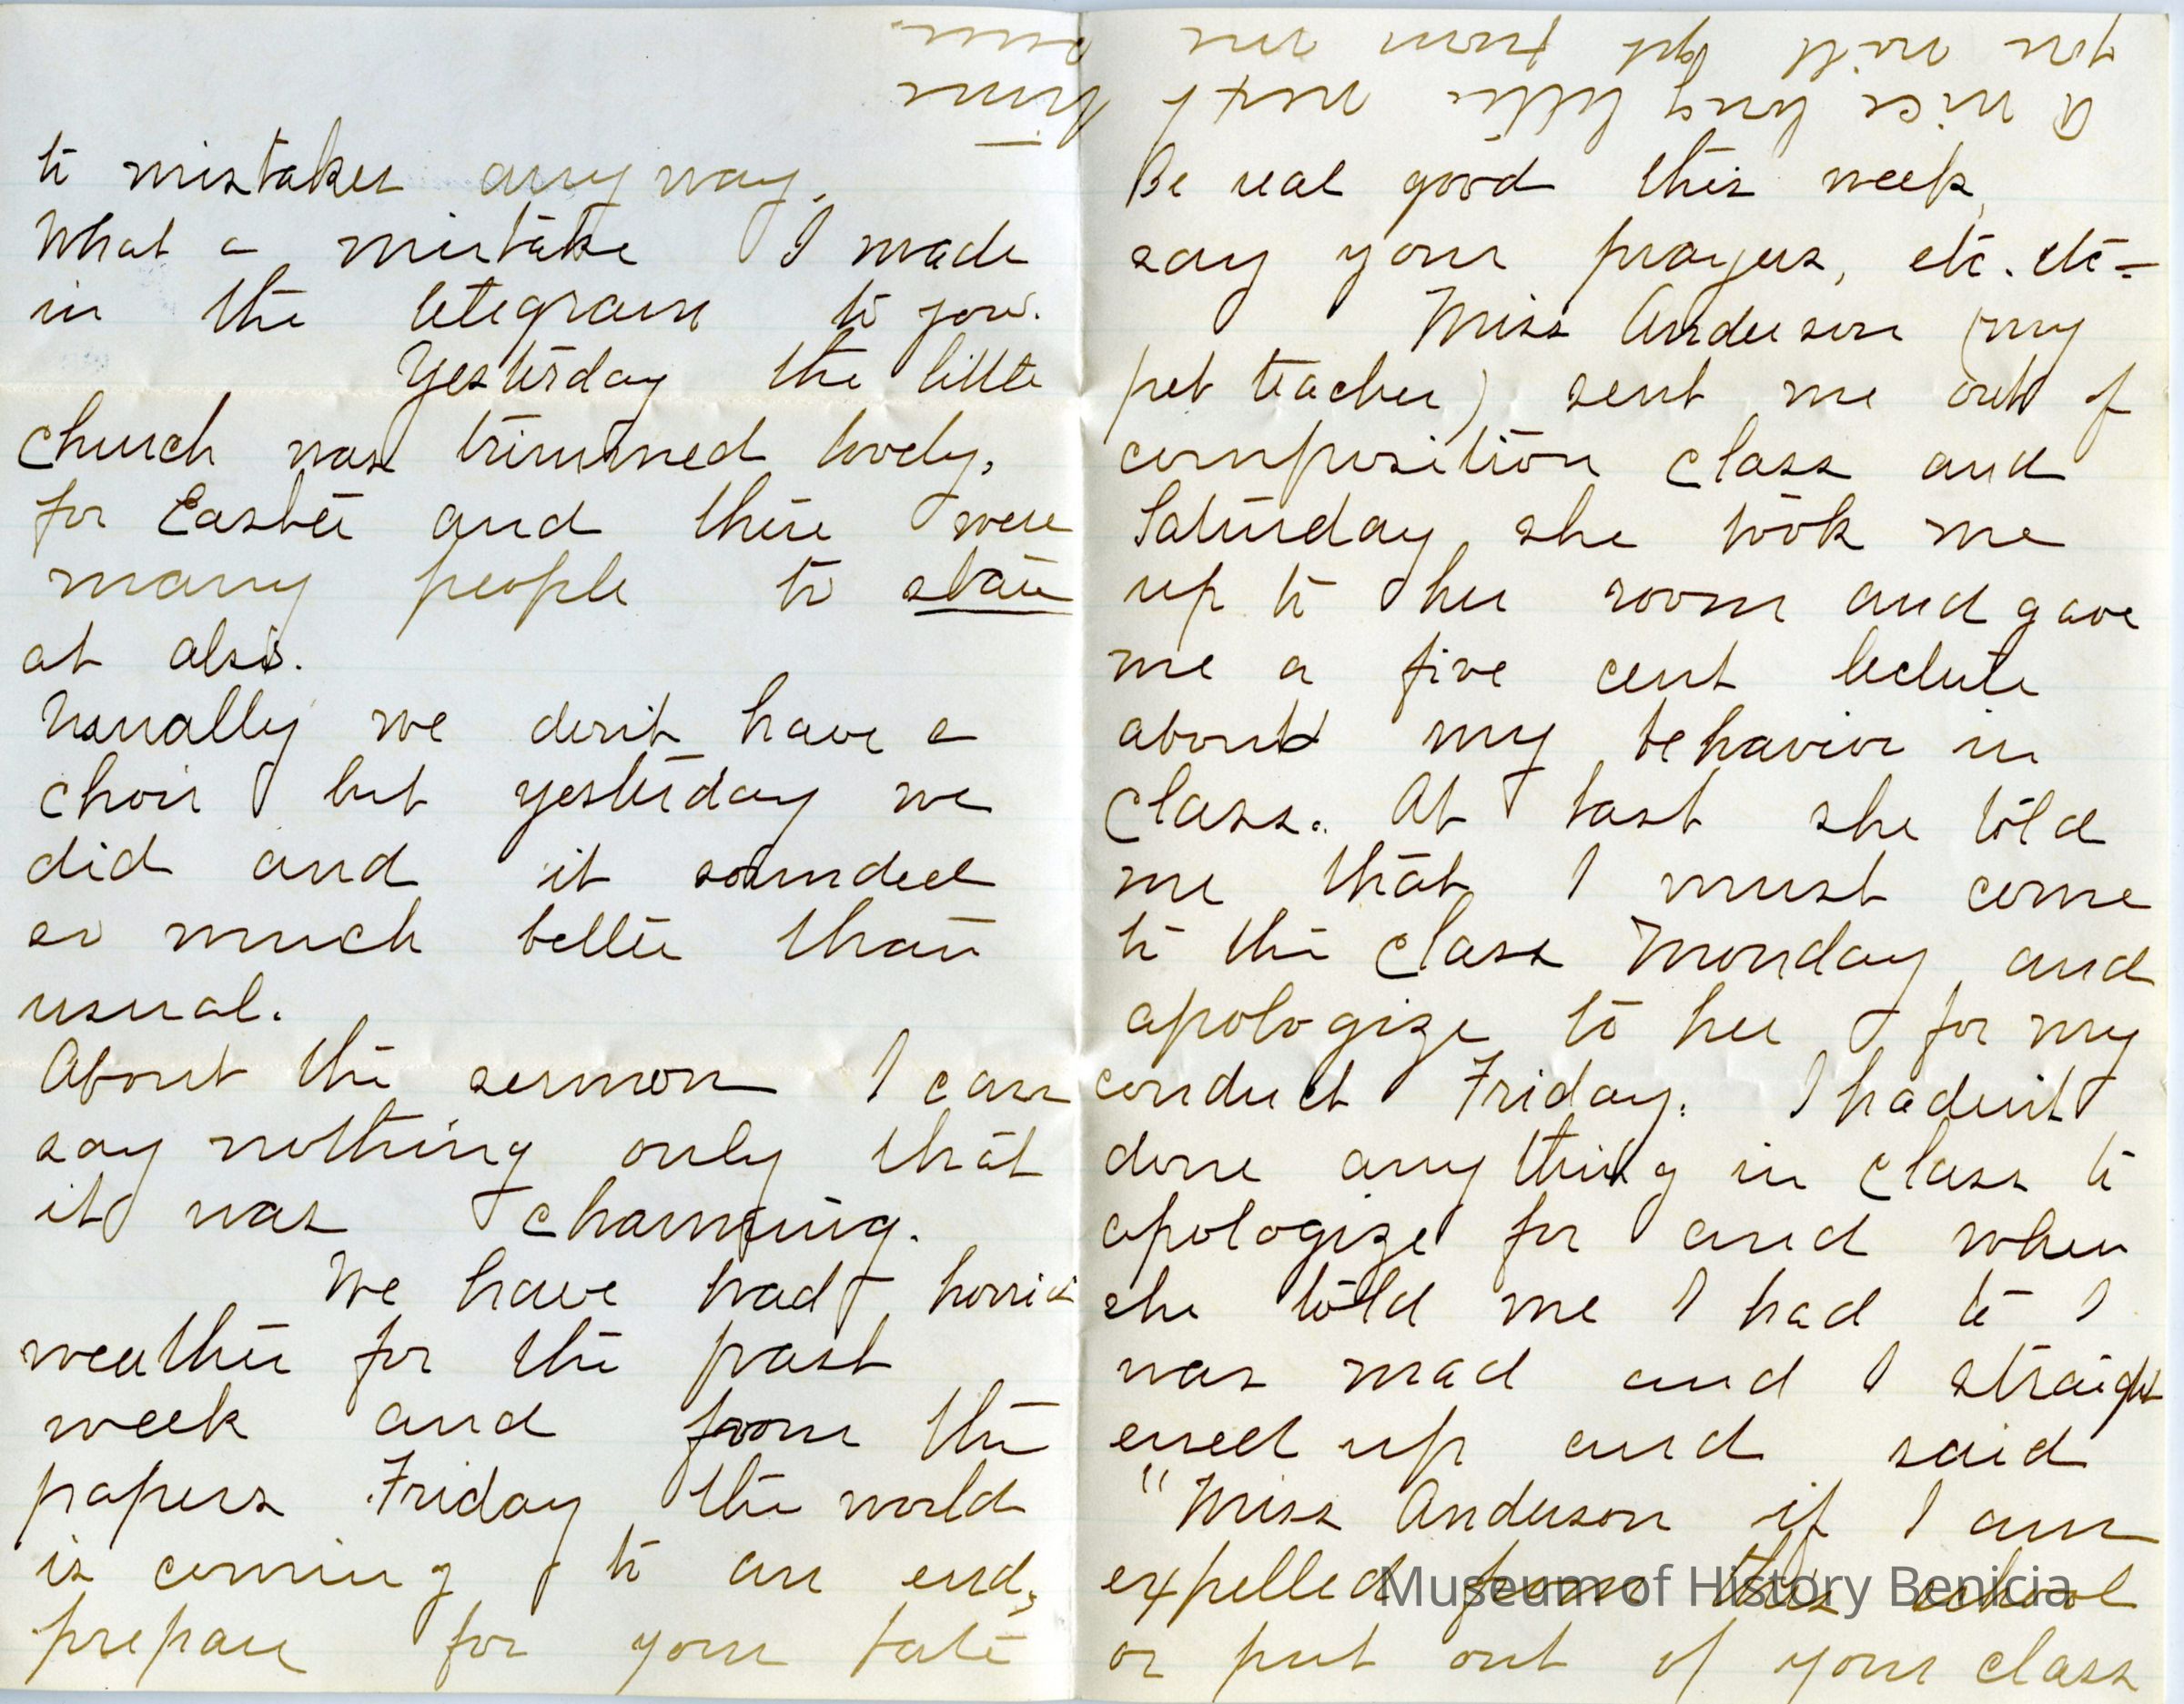 to mistakes anyway.
What a mistake I made
in the telegram to you.
Yesterday the little
church was trimmed lovely,
for Easter and there were
many people to stare
at also.
Usually we don't have a
choir but yesterday we
did and it sounded
so much better than
usual.
About the sermon I can
say nothing only that
it was charming.
We have had horrid
weather for the past
week and from the
papers Friday the world
is coming to an end,
prepare for your fate
Be real good this week,
say your prayers, etc. etc-
Miss Anderson (my
pet teacher) sent me out of
composition class and
Saturday she took me
up to her room and gave
me a five cent lecture
about my behavior in
class. At last she told
me that I must come
to the class Monday and
apologize to her for my
conduct Friday. I hadn't
done anything in class to
apologize for and when
she told me I had to I
was mad and I straight
ened up and said
"Miss Anderson if I am
expelled from this school
or put out of your class
you will get from me
a nice long letter next
time
Museum of History Benicia